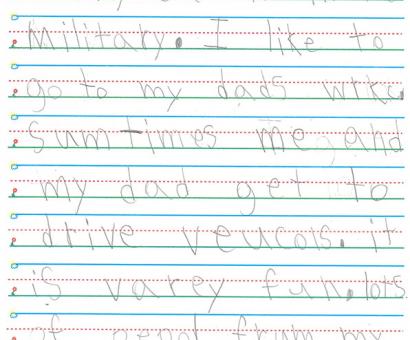 Military. I like to
go to my dads wrke
sumtimes me and
my dad get to
drive veucols. it
is varey fun. lots
of